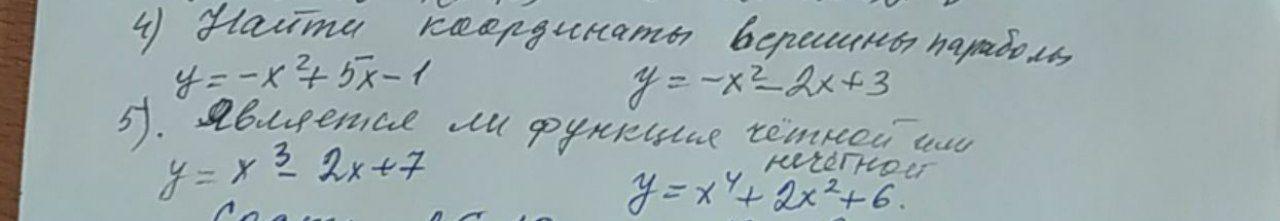 4) Найти координаты вершины параболы
y = -x² + 5x - 1    y = -x² - 2x + 3
5). Является ли функция чётной или нечётной
y = x³ - 2x + 7    y = x⁴ + 2x² + 6.